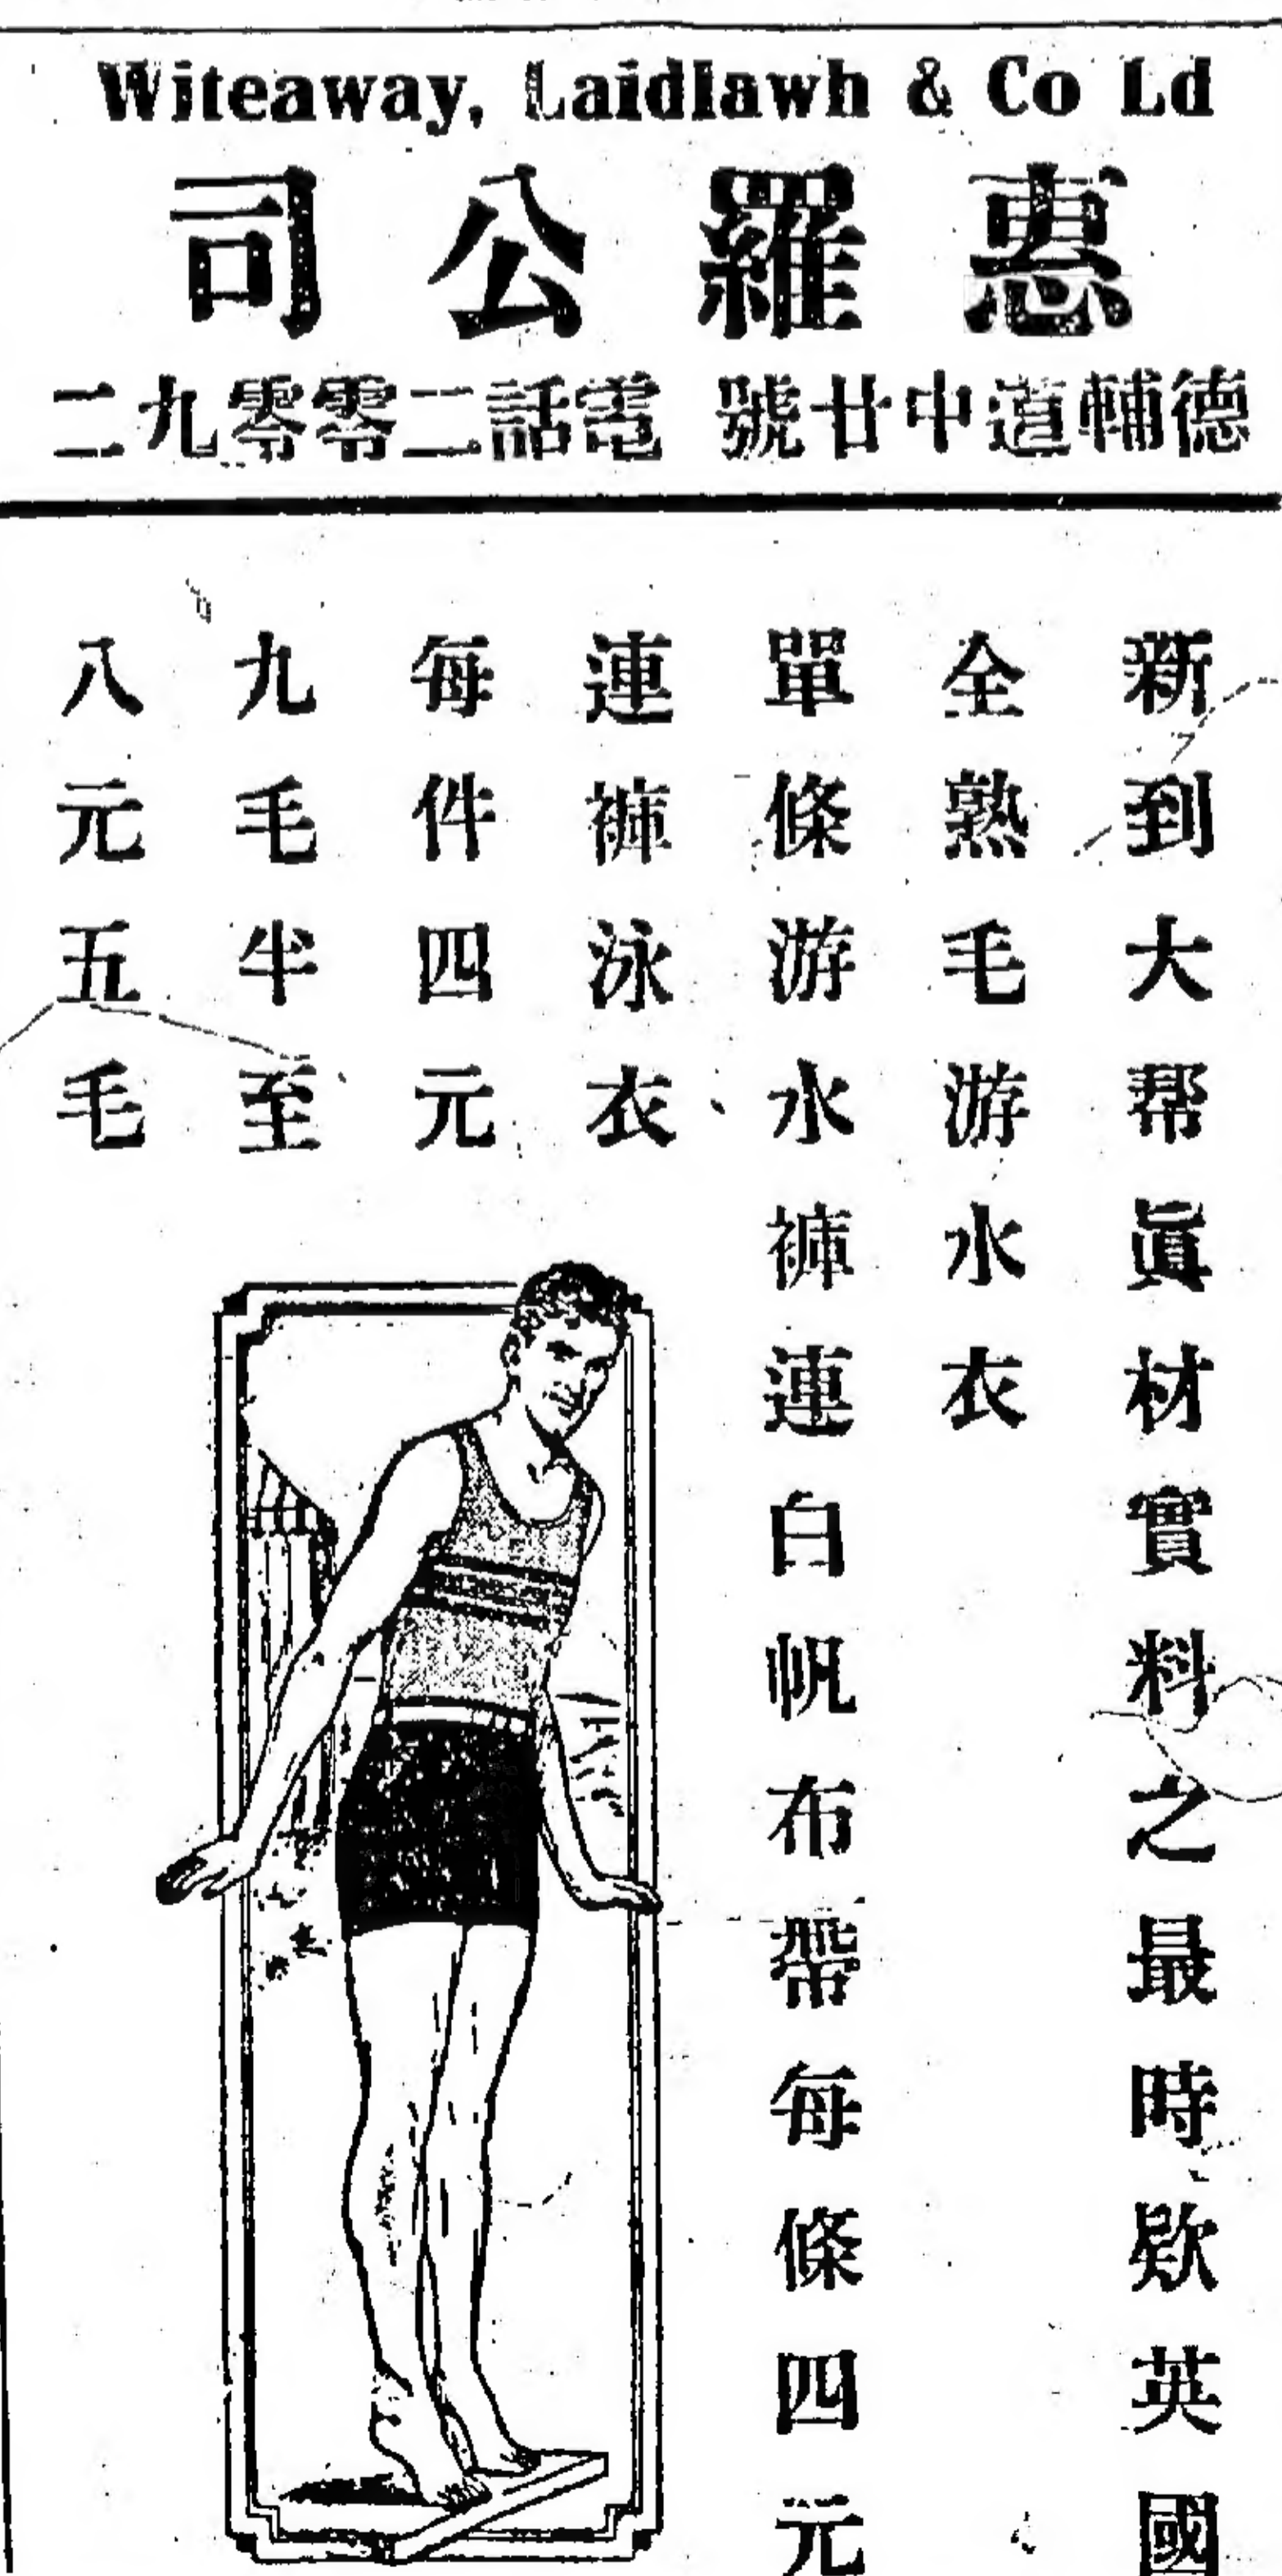 Witeaway, Laidlawh & Co Ld
惠羅公司
德輔道中廿號 電話二零零九二
新到大帮眞材實料之最時欵英國
全熟毛游水衣
單條游水褲連白帆布帶每條四元
連褲泳衣
每件四元
九毛半至
八元五毛